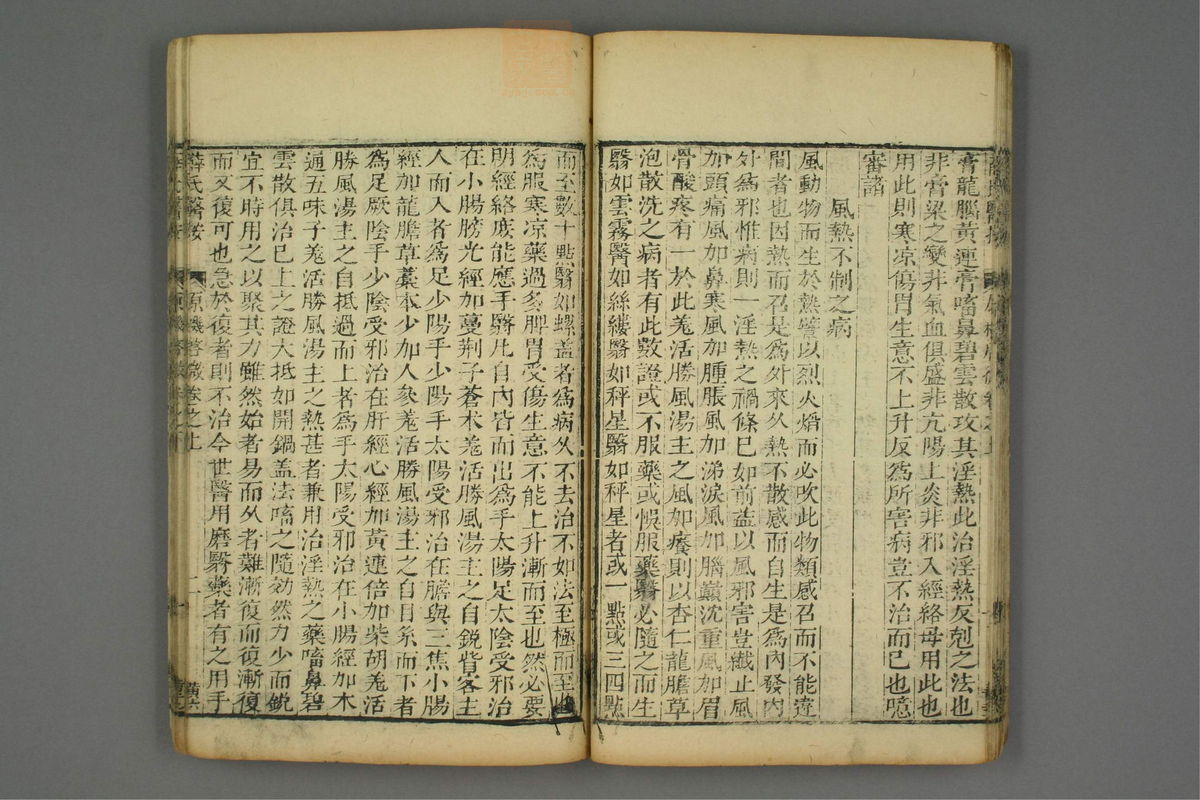 膏龍腦黃連膏㗜鼻碧雲散攻其淫熱此治淫熱反剋之法也
非膏粱之變非氣血俱盛非亢陽上炎非邪入經絡毋用此也
用此則寒凉傷胃生意不上升反為所害病豈不治而已也噫
審諸
風熱不制之病
風動物而生於熱譬以烈火焰而必吹此物類感召而不能違
間者也因熱而召是為外來久熱不散感而自生是為內發內
外為邪惟病則一淫熱之禍條巳如前益以風邪害豈纖止風
加頭痛風加鼻寒風加腫脹風加涕淚風加腦巔沈重風加眉
骨酸疼有一於此羗活勝風湯主之風加癢則以杏仁龍膽草
泡散洗之病者有此數證或不服藥或悞服藥翳必隨之而生
翳如雲霧翳如絲縷翳如秤星翳如秤星者或一點或三四點
而至數十點翳如螺盖者為病久不去治不如法至極而至也
為服寒凉藥過多脾胃受傷生意不能上升漸而至也然必要
明經絡庶能應手翳凡自內眥而出為手太陽足太陰受邪治
在小腸膀光經加蔓荆子蒼术羗活勝風湯主之自銳眥客主
人而入者為足少陽手少陽手太陽受邪治在膽與三焦小腸
經加龍膽草藁本少加人參羗活勝風湯主之自目系而下者
為足厥陰手少陰受邪治在肝經心經加黃連倍加柴胡羗活
勝風湯主之自抵過而上者為手太陽受邪治在小腸經加木
通五味子羗活勝風湯主之熱甚者兼用治淫熱之藥㗜鼻碧
雲散俱治已上之證大抵如開鍋盖法㗜之隨効然力少而銳
宜不時用之以聚其力雖然始者易而久者難漸復而復漸復
而又復可也急於復者則不治今世醫用磨翳藥者有之用手
薛氏醫按 原機啓微卷之上 二